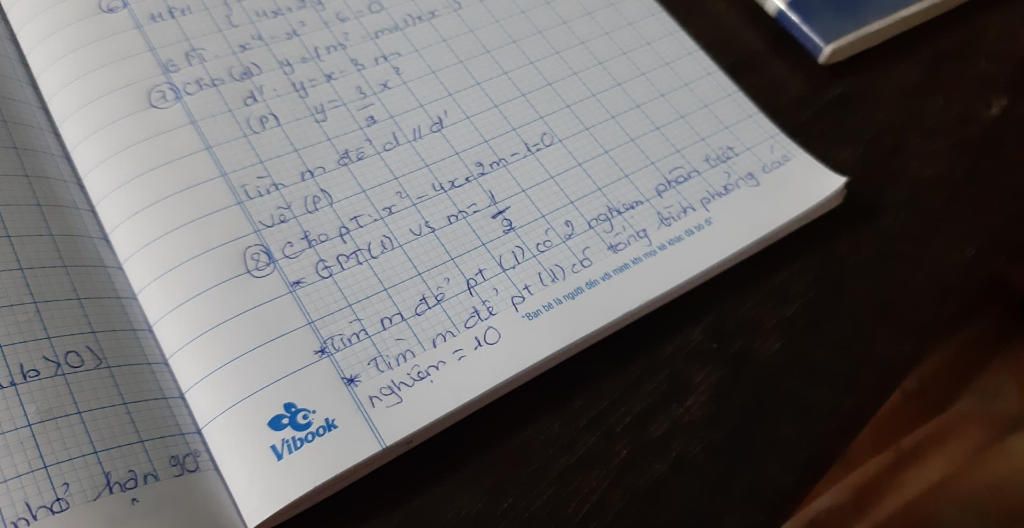 ⑥
HPT
GPT: x⁴ - x² - 6 = 0
⑦ Cho (d) y = (m²
d': y = x - 3m
(P) y = 3/2 x²
Tìm m để d // d'
Vẽ (P)
⑧ Cho pT: x² - 4x + 2m - 1 = 0
* GPT (1) vs m = 1/2
* Tìm m để pt (1) có 2 nghiệm phân biệt
* Tìm m để pt (1) có tổng bình phương các
nghiệm = 10
"Bạn bè là người đến với mình khi mọi kẻ khác đã bỏ đi"
Vibook
b > 0)
nhỏ hơn 90°